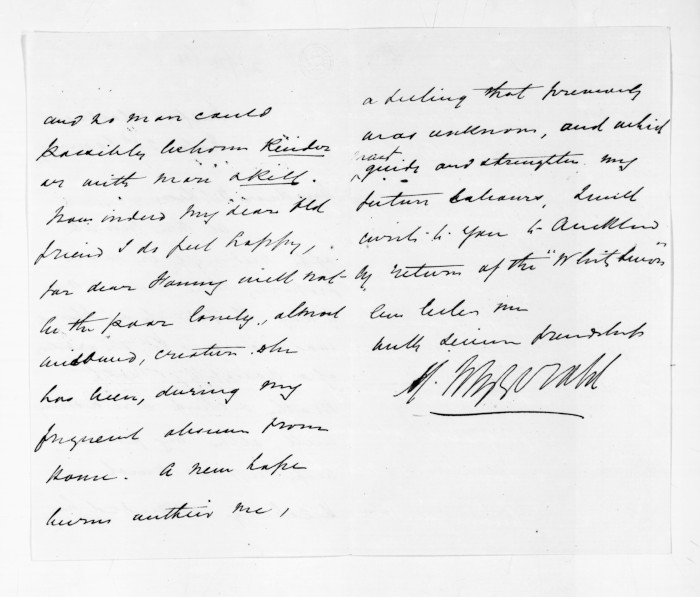 and no man could
possibly behave kinder
or with more skill.
Now indeed my dear old
friend I do feel happy,
for dear Fanny will not
be the poor lonely, almost
widowed, creature she
has been, during my
frequent absence from
Home. A new hope
burns within me,
a feeling that previously
was unknown, and which
must
guide and strengthen my
future labours, I will
write to you to Auckland
by return of the "White Swan"
believe me
with sincere friendship